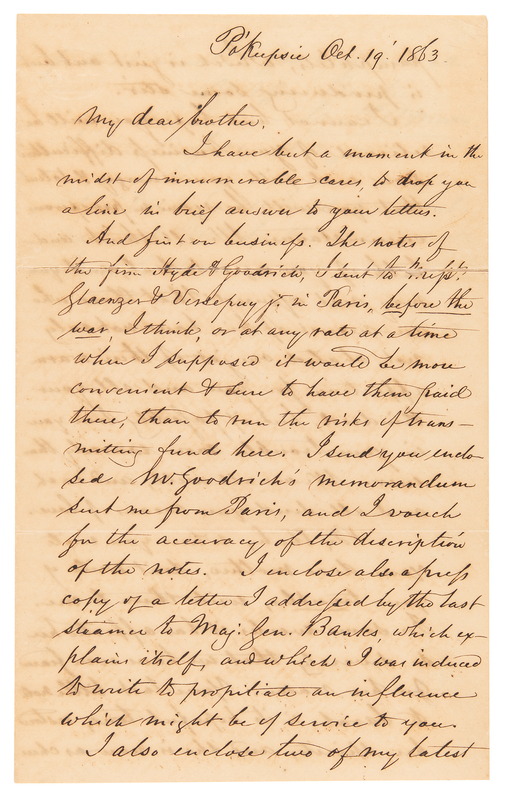 Po'Keepsie Oct. 19. 1863.
My dear brother,
I have but a moment in the
midst of innumerable cares, to drop you
a line in brief answer to your letters.
And first on business. The notes of
the firm Hyde & Goodrich, I sent to Mess.rs
Glaenzer & Versepuy Jr. in Paris, before the
war, I think, or at any rate at a time
when I supposed it would be more
convenient & sure to have them paid
there, than to run the risks of trans-
mitting funds here. I send you enclo-
sed Mr. Goodrich's memorandum
sent me from Paris, and I vouch
for the accuracy of the description
of the notes. I enclose also a press
copy of a letter I addressed by the last
steamer to Maj. Gen. Banks, which ex-
plains itself, and which I was induced
to write to propitiate an influence
which might be of service to you.
I also enclose two of my latest